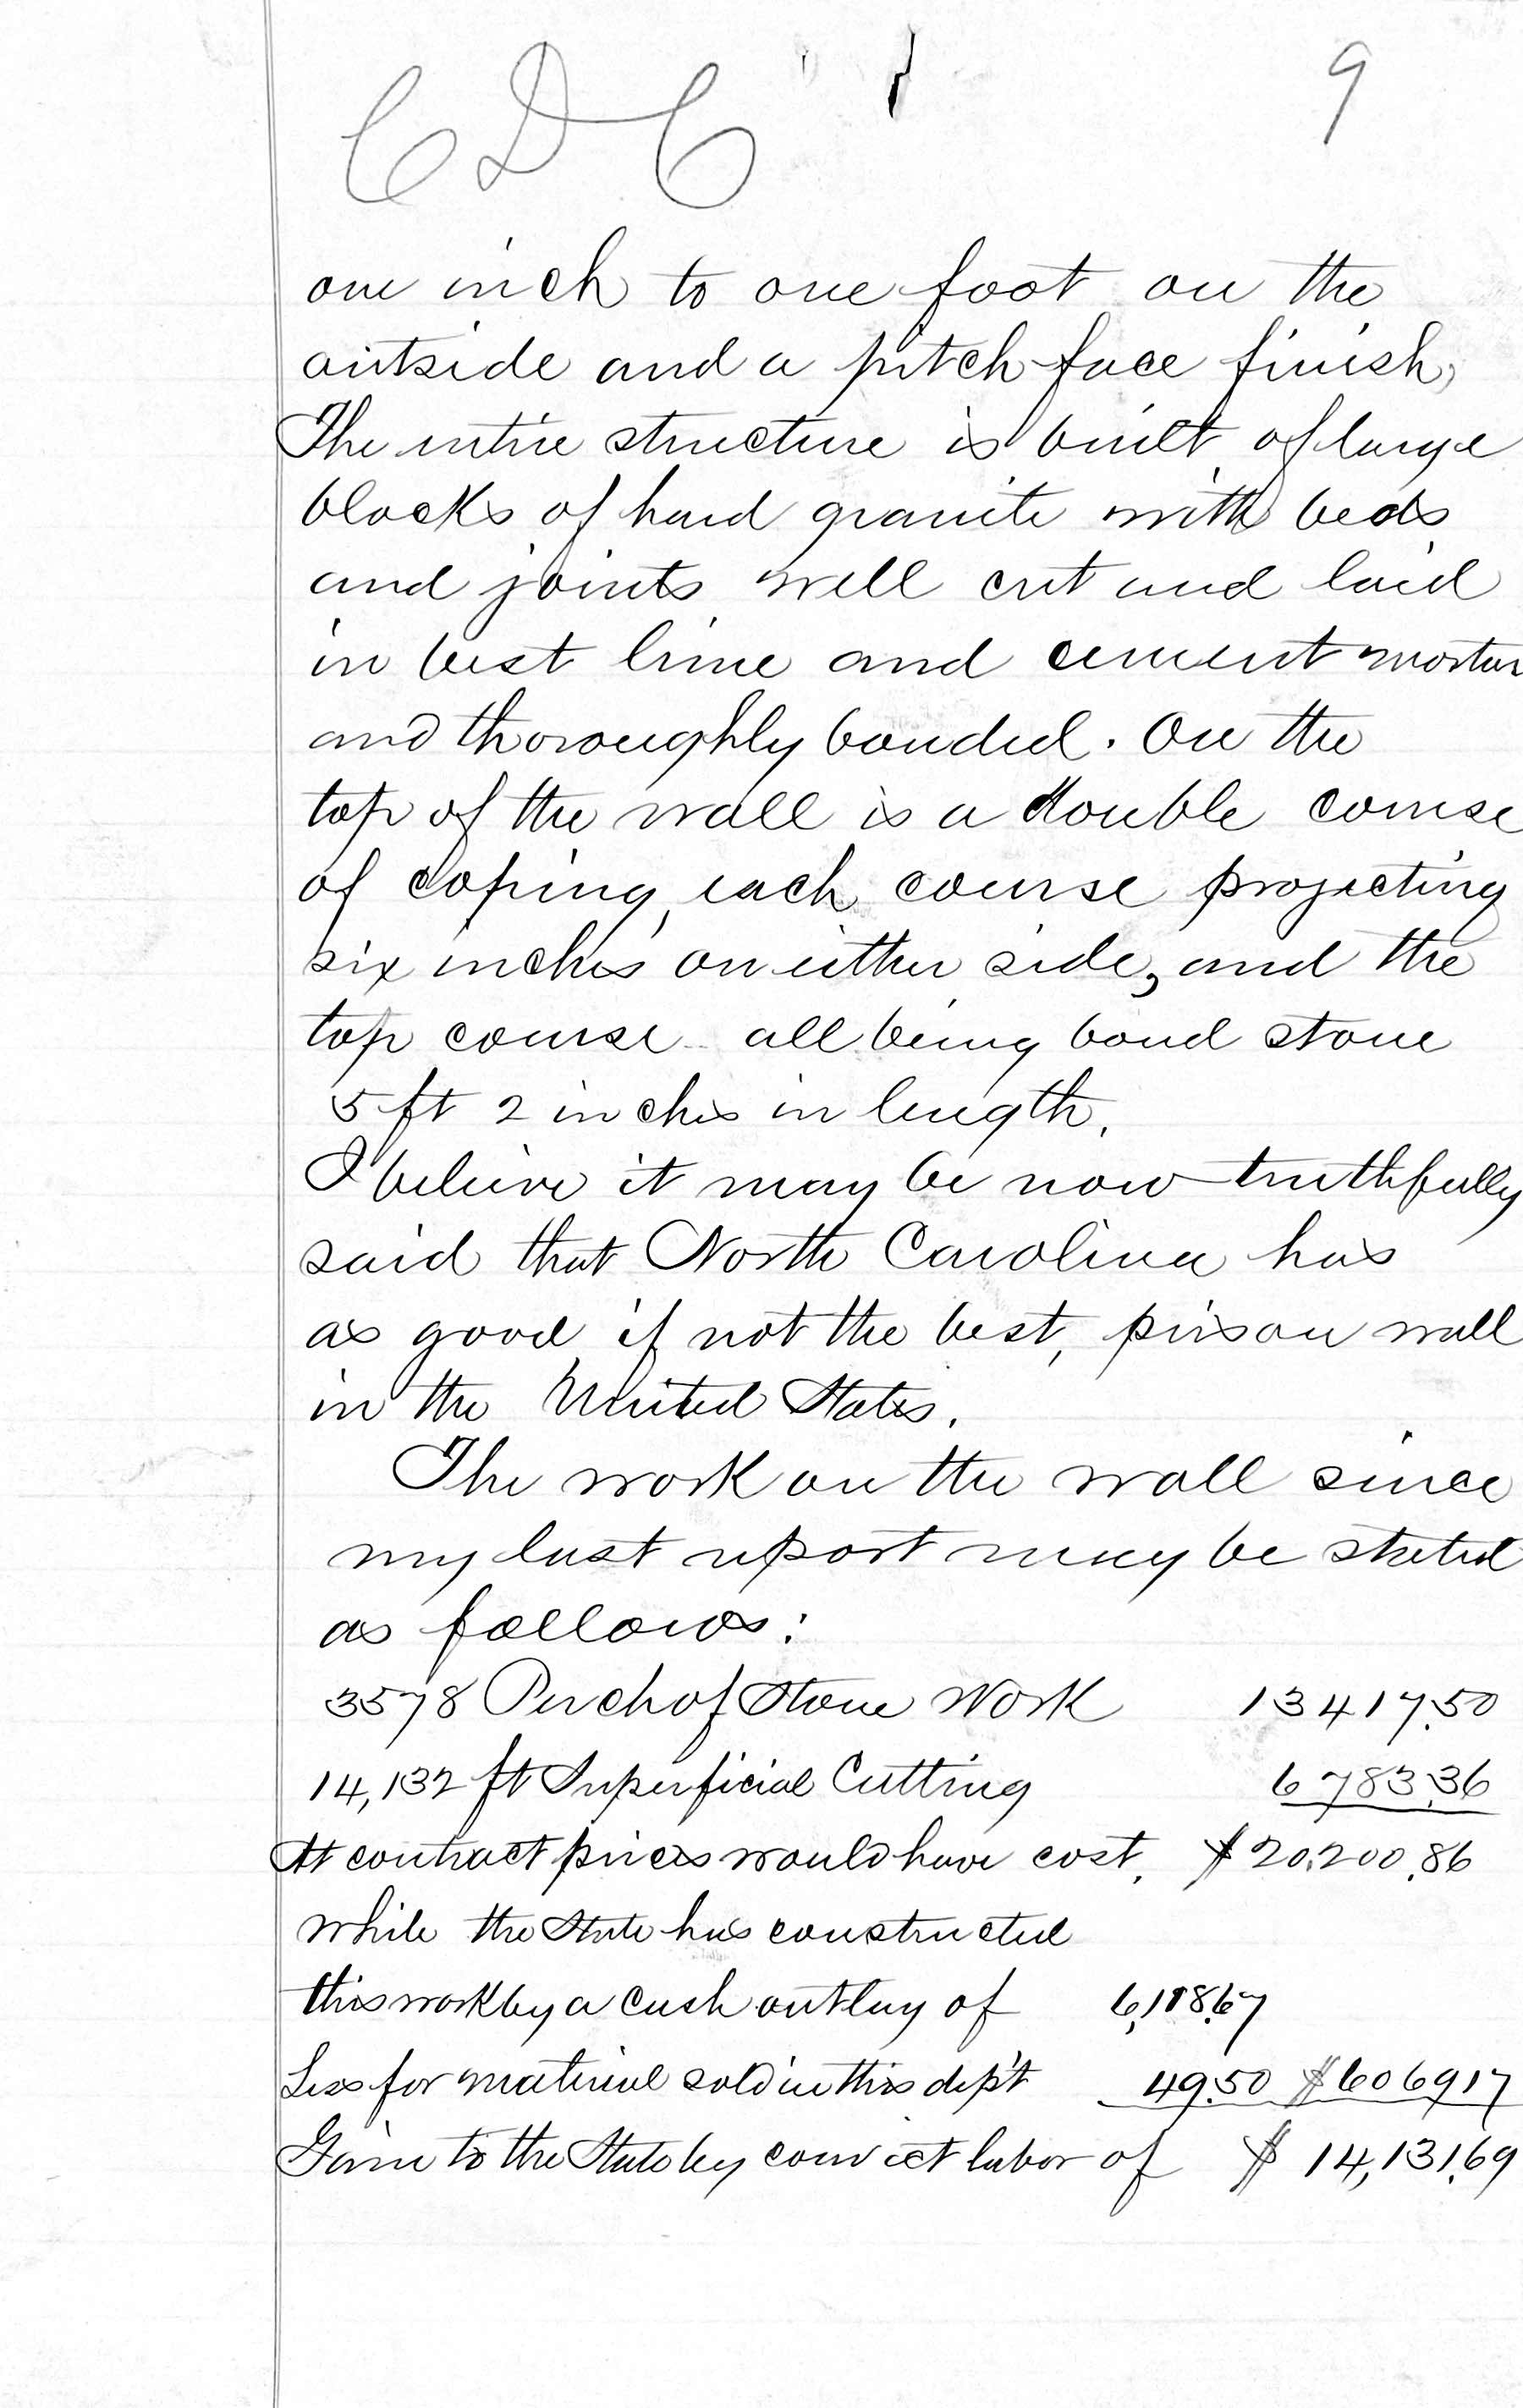 C D C 9
one inch to one foot on the
outside and a pitch face finish,
The entire structure is built of large
blocks of hard granite with beds
and joints well cut and laid
in best lime and cement mortar
and thoroughly bonded. On the
top of the wall is a double course
of coping, each course projecting
six inches on either side, and the
top course all being bond stone
5 ft 2 inches in length.
I believe it may be now truthfully
said that North Carolina has
as good, if not the best, prison wall
in the United States.
The work on the wall since
my last report may be stated
as follows:
3578 Perch of Stone Work 13417.50
14,132 ft Superficial Cutting 6783.36
At contract prices would have cost. $20,200.86
While the State has constructed
this work by a cash outlay of 6,118.67
Less for material sold in this dep't 49.50 $606917
Gain to the State by convict labor of $14,131.69